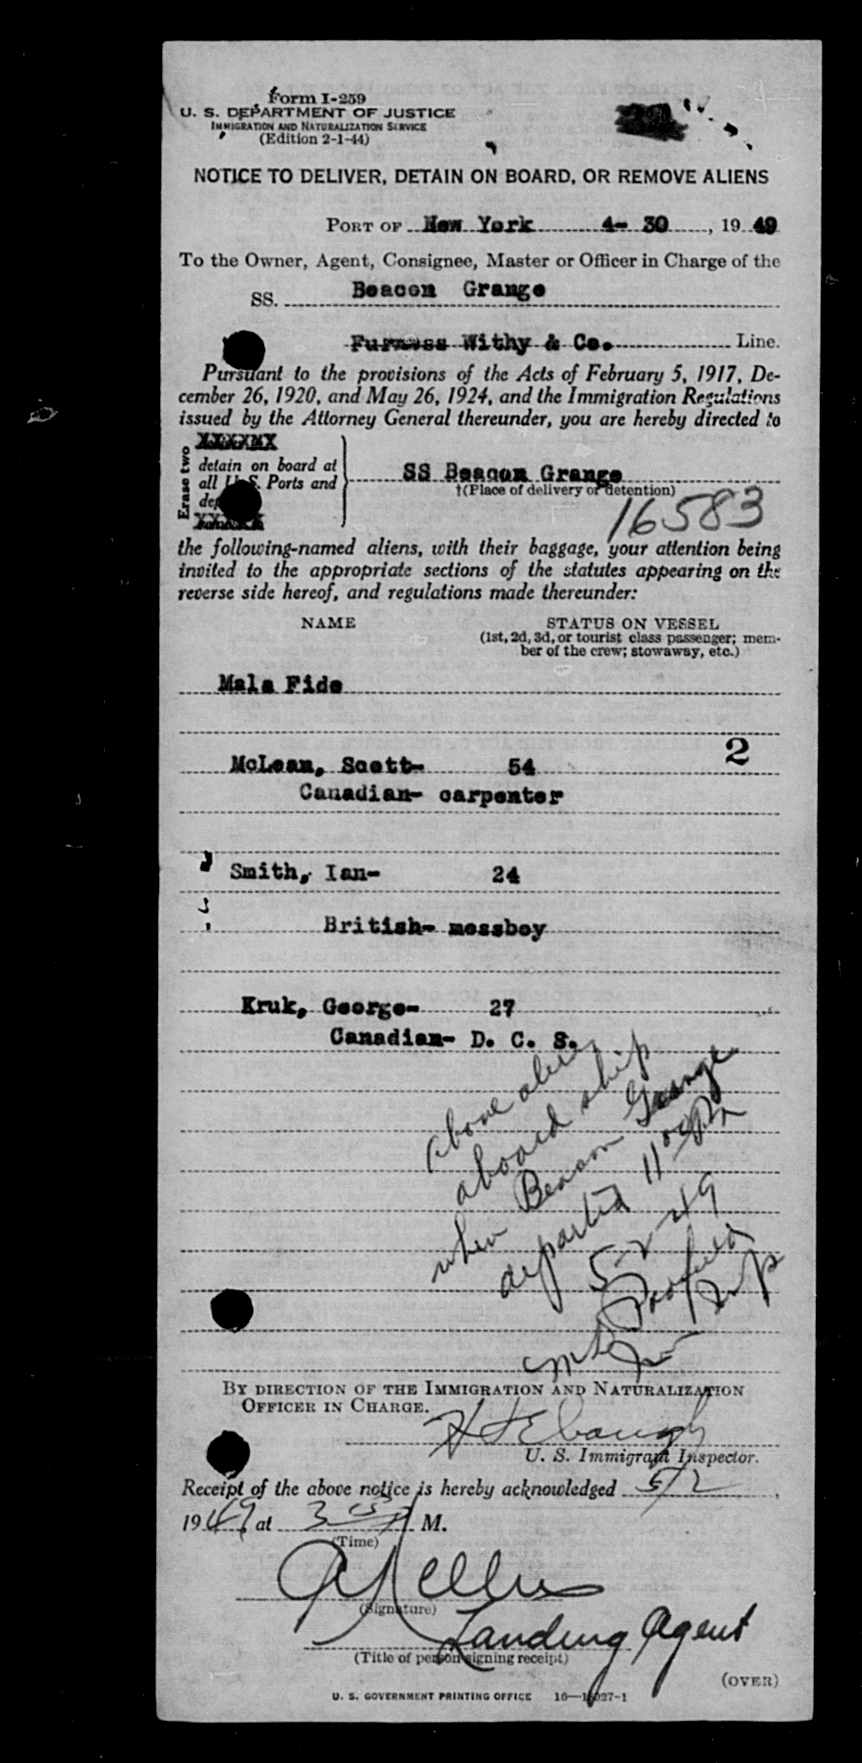 Form I-259
U. S. DEPARTMENT OF JUSTICE
IMMIGRATION AND NATURALIZATION SERVICE
(Edition 2-1-44)
NOTICE TO DELIVER, DETAIN ON BOARD, OR REMOVE ALIENS
PORT OF New York 4- 30, 1949
To the Owner, Agent, Consignee, Master or Officer in Charge of the
SS. Beacon Grange
Furness Withy & Co. Line.
Pursuant to the provisions of the Acts of February 5, 1917, De-
cember 26, 1920, and May 26, 1924, and the Immigration Regulations
issued by the Attorney General thereunder, you are hereby directed to
Erase two
detain on board at
all U. S. Ports and
SS Beacon Grange
†(Place of delivery or detention)
16583
the following-named aliens, with their baggage, your attention being
invited to the appropriate sections of the statutes appearing on the
reverse side hereof, and regulations made thereunder:
NAME STATUS ON VESSEL
(1st, 2d, 3d, or tourist class passenger; mem-
ber of the crew; stowaway, etc.)
Mala Fide
2
McLean, Scott- 54
Canadian- carpenter
Smith, Ian- 24
British- messboy
Kruk, George- 27
Canadian- D. C. S.
above aliens
aboard ship
when Beacon Grange
departed 11
5-2-49
BY DIRECTION OF THE IMMIGRATION AND NATURALIZATION
OFFICER IN CHARGE.
U. S. Immigrant Inspector.
Receipt of the above notice is hereby acknowledged 5/2,
1949 at 3 M.
(Time)
(Signature)
Landing Agent
(Title of person signing receipt)
(OVER)
U. S. GOVERNMENT PRINTING OFFICE